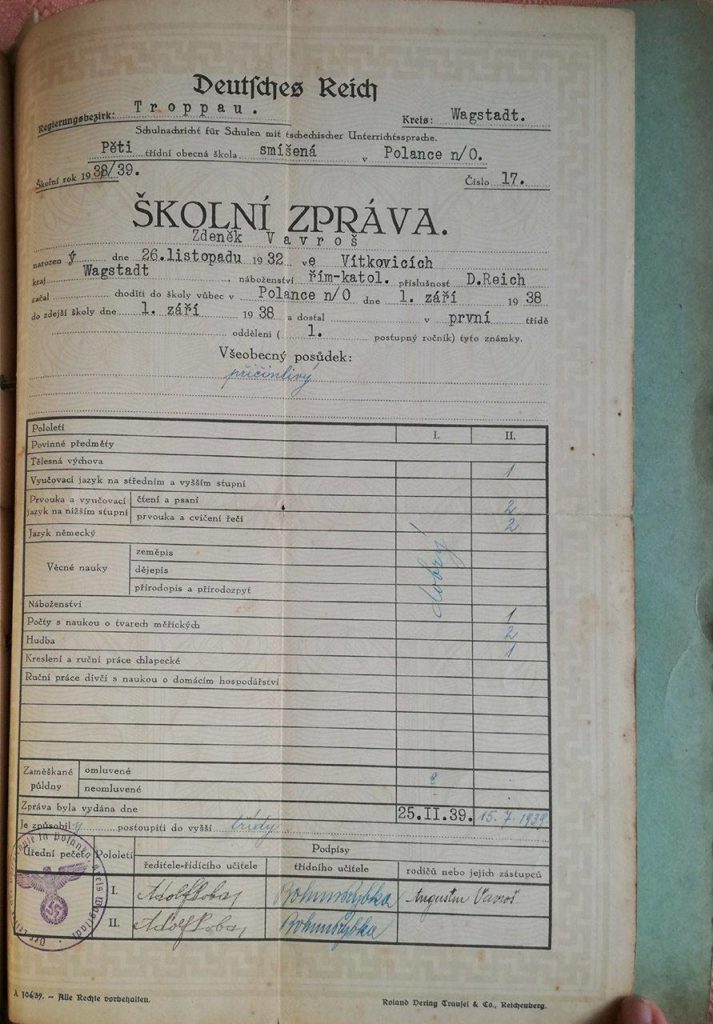 Deutsches Reich
Regierungsbezirk: Troppau. Kreis: Wagstadt.
Schulnachricht für Schulen mit tschechischer Unterrichtssprache.
Pěti třídní obecná škola smíšená v Polance n/O.
Školní rok 1938/39. Číslo 17.
ŠKOLNÍ ZPRÁVA.
Zdeněk Vavroš
narozen ý dne 26.listopadu 1932 ve Vítkovicích
kraj Wagstadt, náboženství řím-katol. příslušnost D.Reich
začal choditi do školy vůbec v Polance n/O dne 1. září 1938
do zdejší školy dne 1. září 1938 a dostal v první třídě
oddělení ( 1. postupný ročník) tyto známky.
Všeobecný posudek:
přičinlivý
Pololetí I. II.
Povinné předměty
Tělesná výchova 1
Vyučovací jazyk na středním a vyšším stupni
Prvouka a vyučovací jazyk na nižším stupni čtení a psaní 2
prvouka a cvičení řeči 2
Jazyk německý
dobrý
Věcné nauky zeměpis
dějepis
přírodopis a přírodozpyt
Náboženství
Počty s naukou o tvarech měřických 1
Hudba 2
Kreslení a ruční práce chlapecké 1
Ruční práce dívčí s naukou o domácím hospodářství
Zaměškané půldny omluvené
neomluvené
Zpráva byla vydána dne 25.II.39. 15.7.1939
Je způsobilý postoupiti do vyšší třídy
Úřední pečeť Pololetí Podpisy
ředitele-řídícího učitele třídního učitele rodičů nebo jejich zástupců
I. Augustin Vavroš
II.
A 106/39. – Alle Rechte vorbehalten. Roland Verlag Trautsel & Co., Reichenberg.